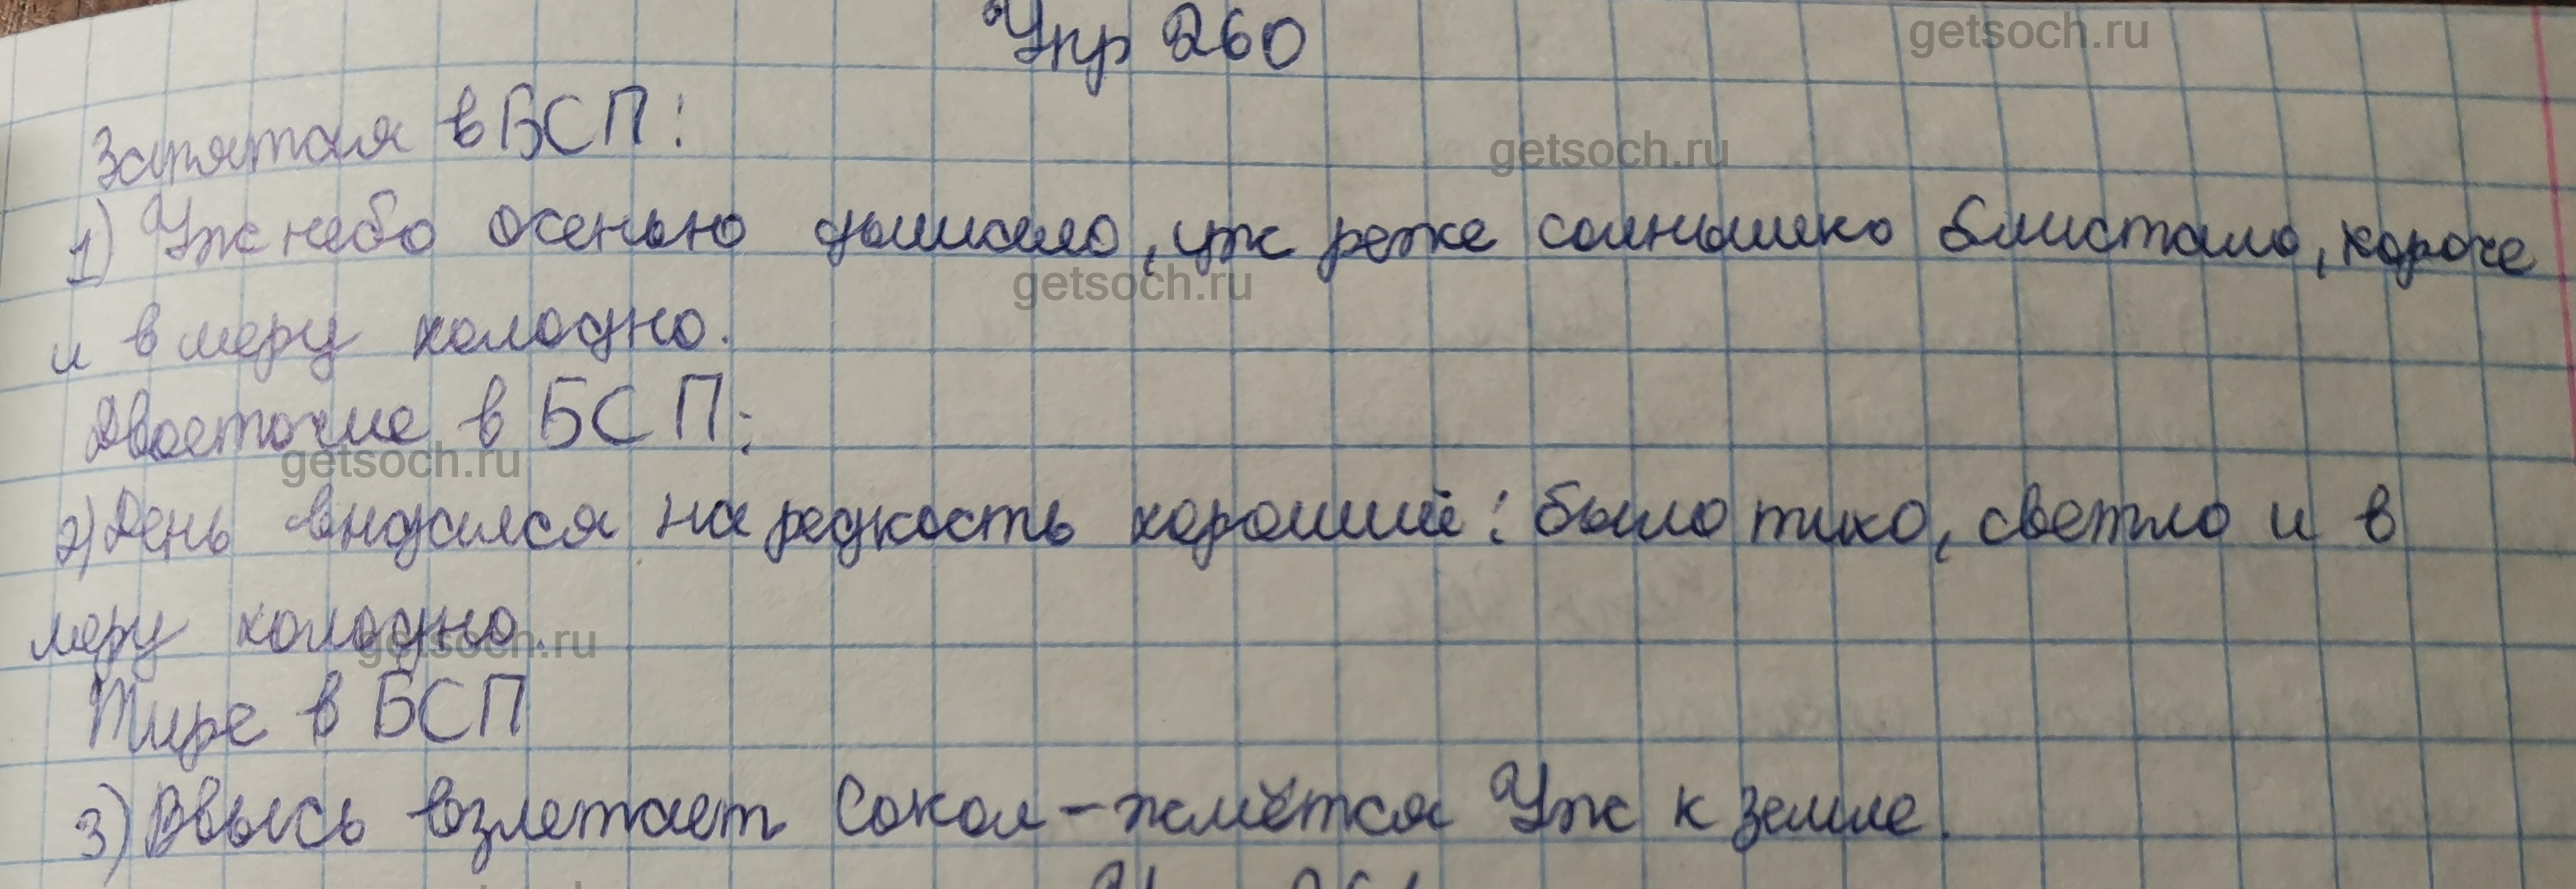 Упр 260
getsoch.ru
Запятая в БСП:
getsoch.ru
1) Уж небо осенью дышало, уж реже солнышко блистало, короче
getsoch.ru
и в меру холодно.
Двоеточие в БСП:
getsoch.ru
2) День выдался на редкость хороший: было тихо, светло и в
меру холодно.
getsoch.ru
Тире в БСП
3) Ввысь взлетает Сокол – жмётся Уж к земле.